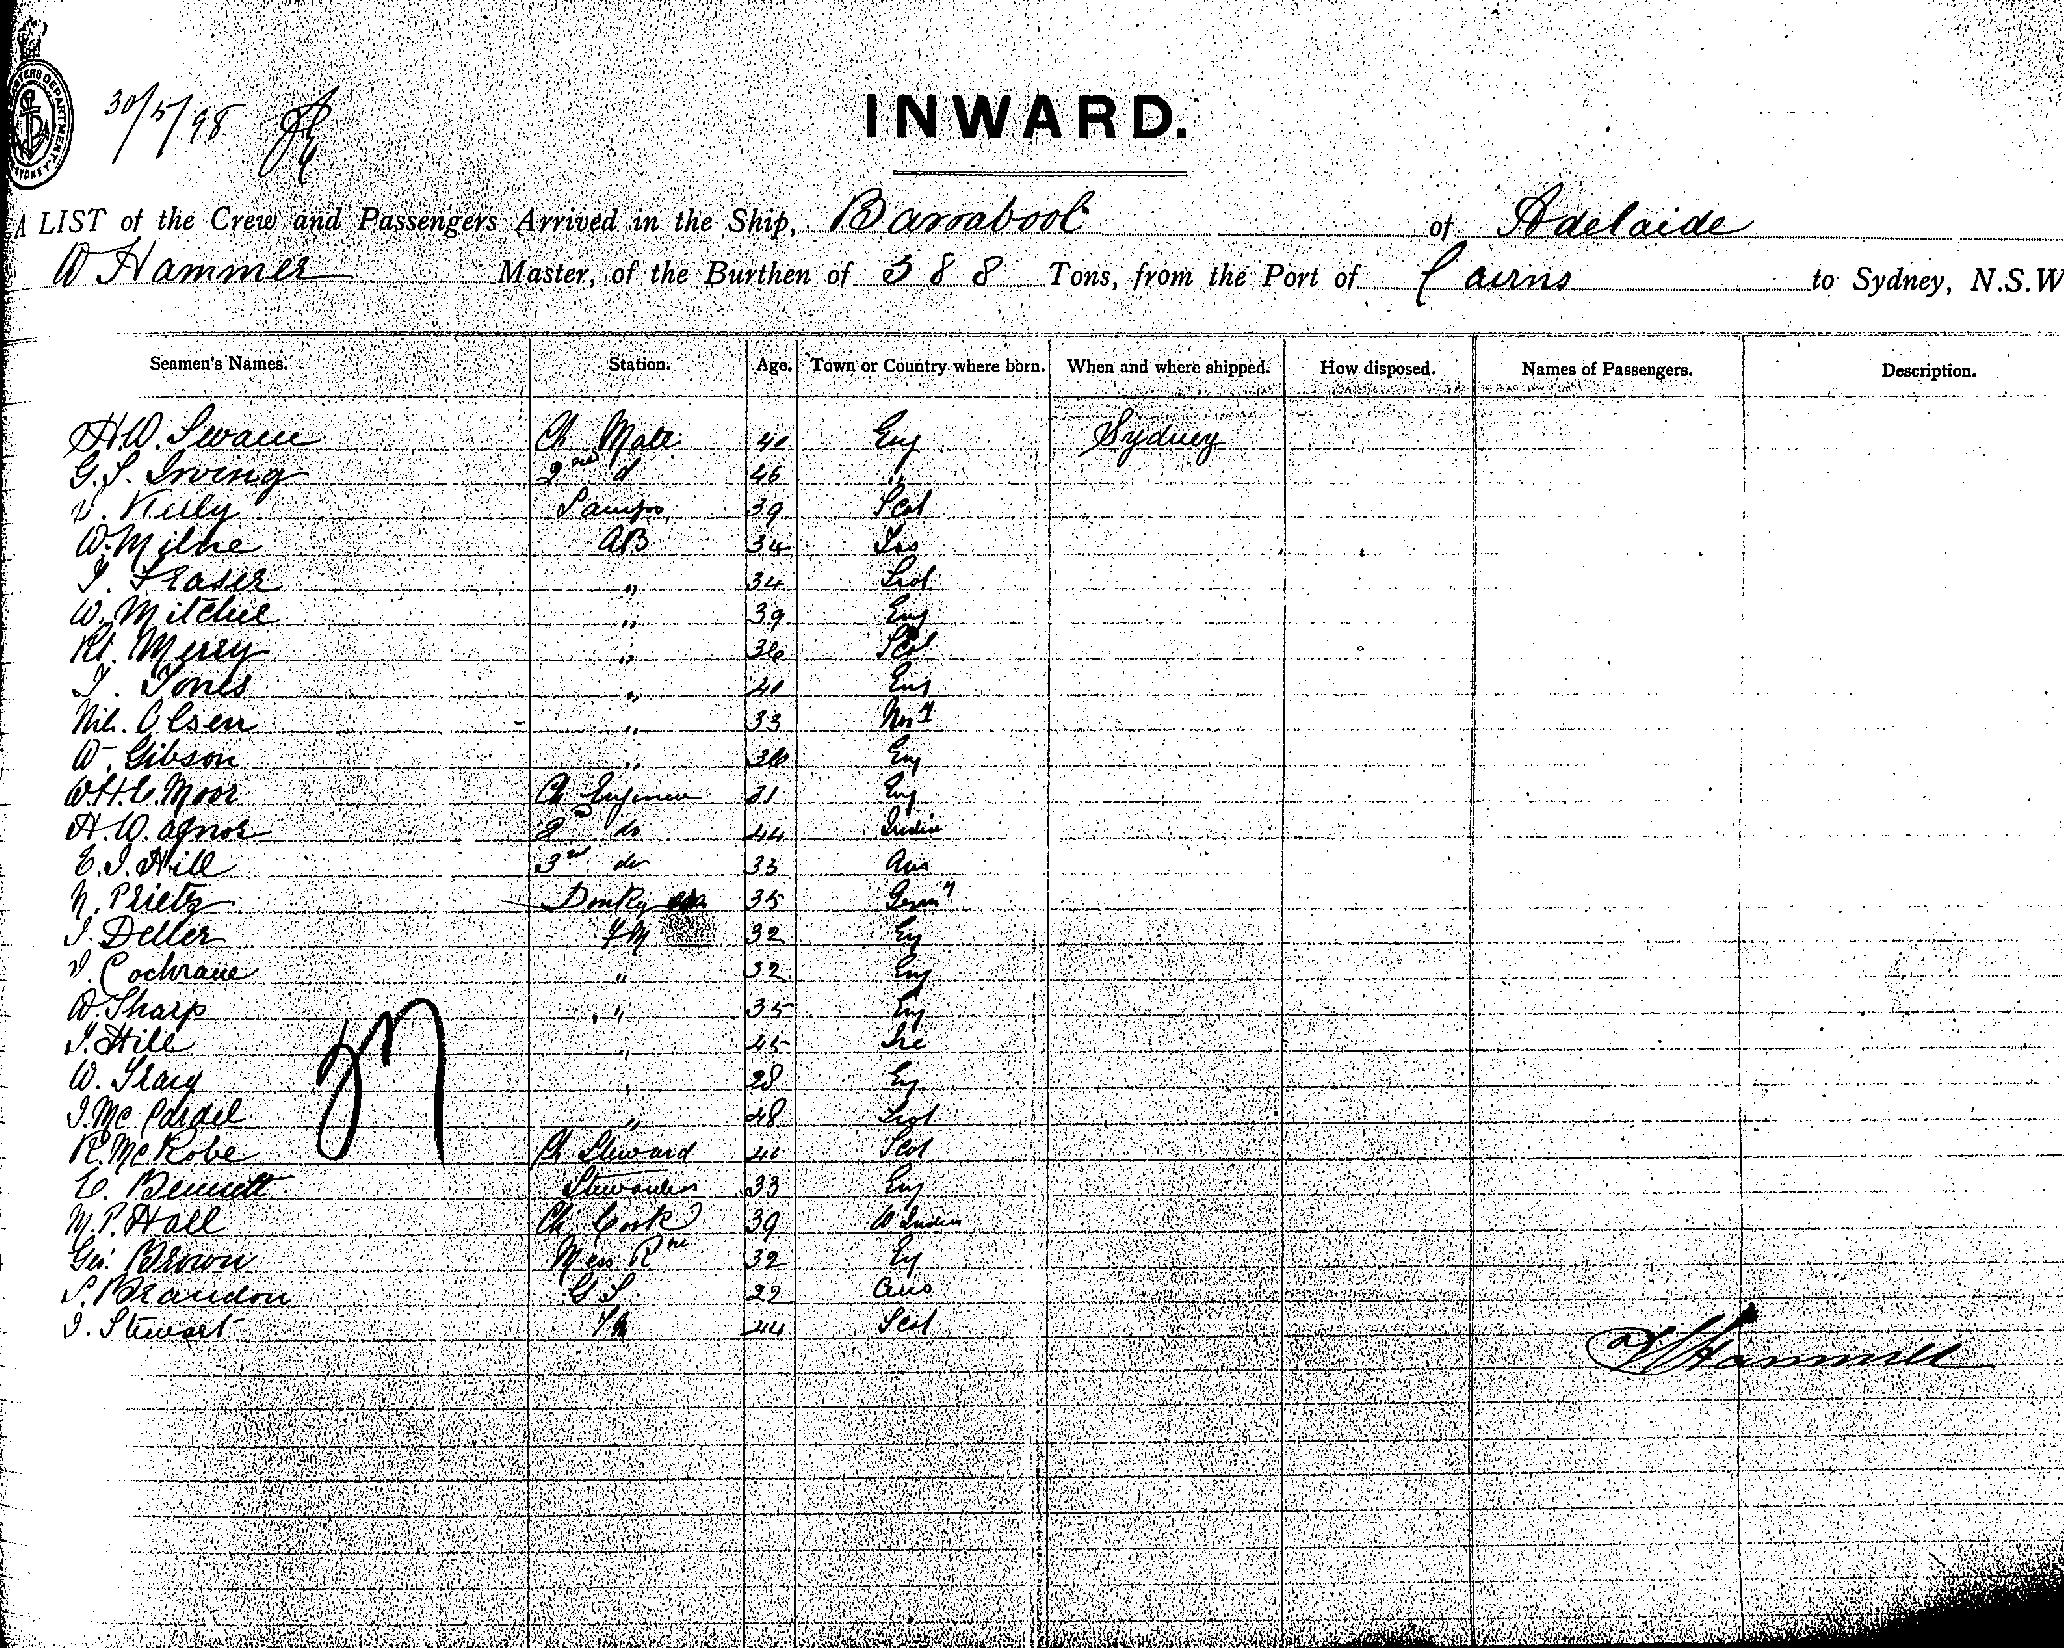 30/5/98
INWARD.
A LIST of the Crew and Passengers Arrived in the Ship, Barrabool of Adelaide
W Hammer Master, of the Burthen of 388 Tons, from the Port of Cairns to Sydney, N.S.W
Seamen's Names. Station. Age. Town or Country where born. When and where shipped. How disposed. Names of Passengers. Description.
H.W. Swain Ch Mate 41 Eng Sydney
G.S. Irving 2nd d 46 "
Kelly Lamps 39 Scot
W. Milne AB 34
Fraser " 34 Scot
W. Mitchie " 39 Eng
Rt. Merry " 36 Scot
T. Jones " 41 Eng
Olsen " 33 Nor
W. Gibson " 36 Eng
W.H.C. Moor Ch Engineer 31 Eng
H.W. Agnor 2 do 44 India
E.J. Hill 3rd do 33 Aus
N. Prietz Donkey 35 Germy
J. Deller FM 32 Eng
J. Cochrane " 32 Eng
W. Sharp " 35 Eng
J. Hill " 45 Ire
W. Tracy " 28 Eng
J. McCardel " 48 Scot
R. McRobe Ch Steward 40 Scot
E. Bennett Stewardess 33 Eng
M.P. Hall Ch Cook 39 W Indies
Geo. Brown Mess Rm 32 Eng
S. Brandon G S. 22 Aus
J. Stewart FM 44 Scot